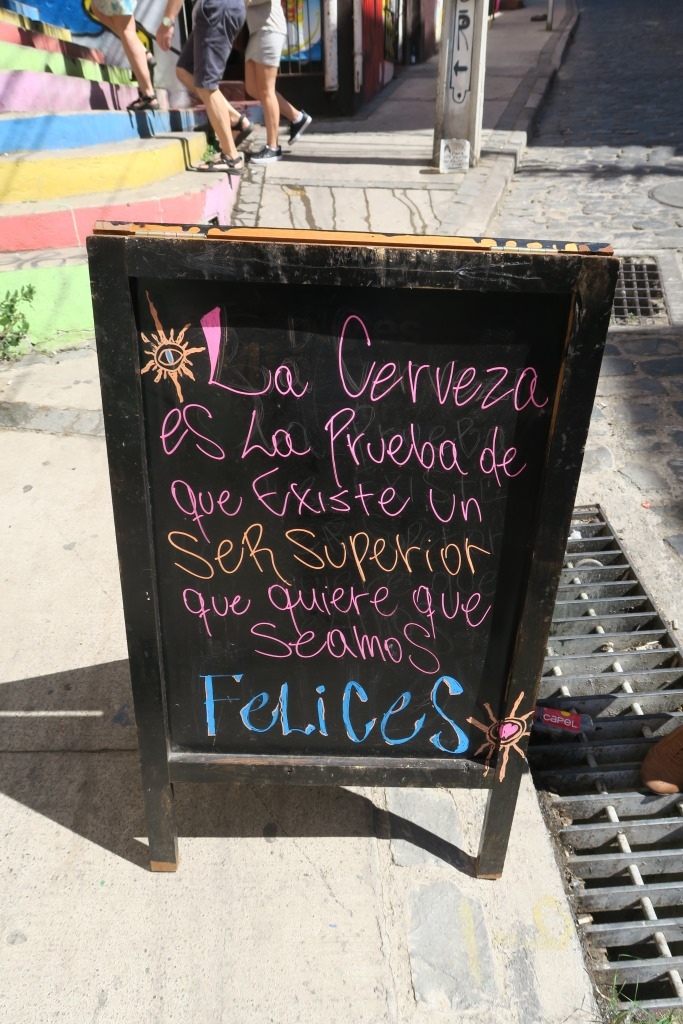 La Cerveza
es La Prueba de
que Existe un
SeR Superior
que quiere que
SeamoS
FeLiCeS
CAPEL